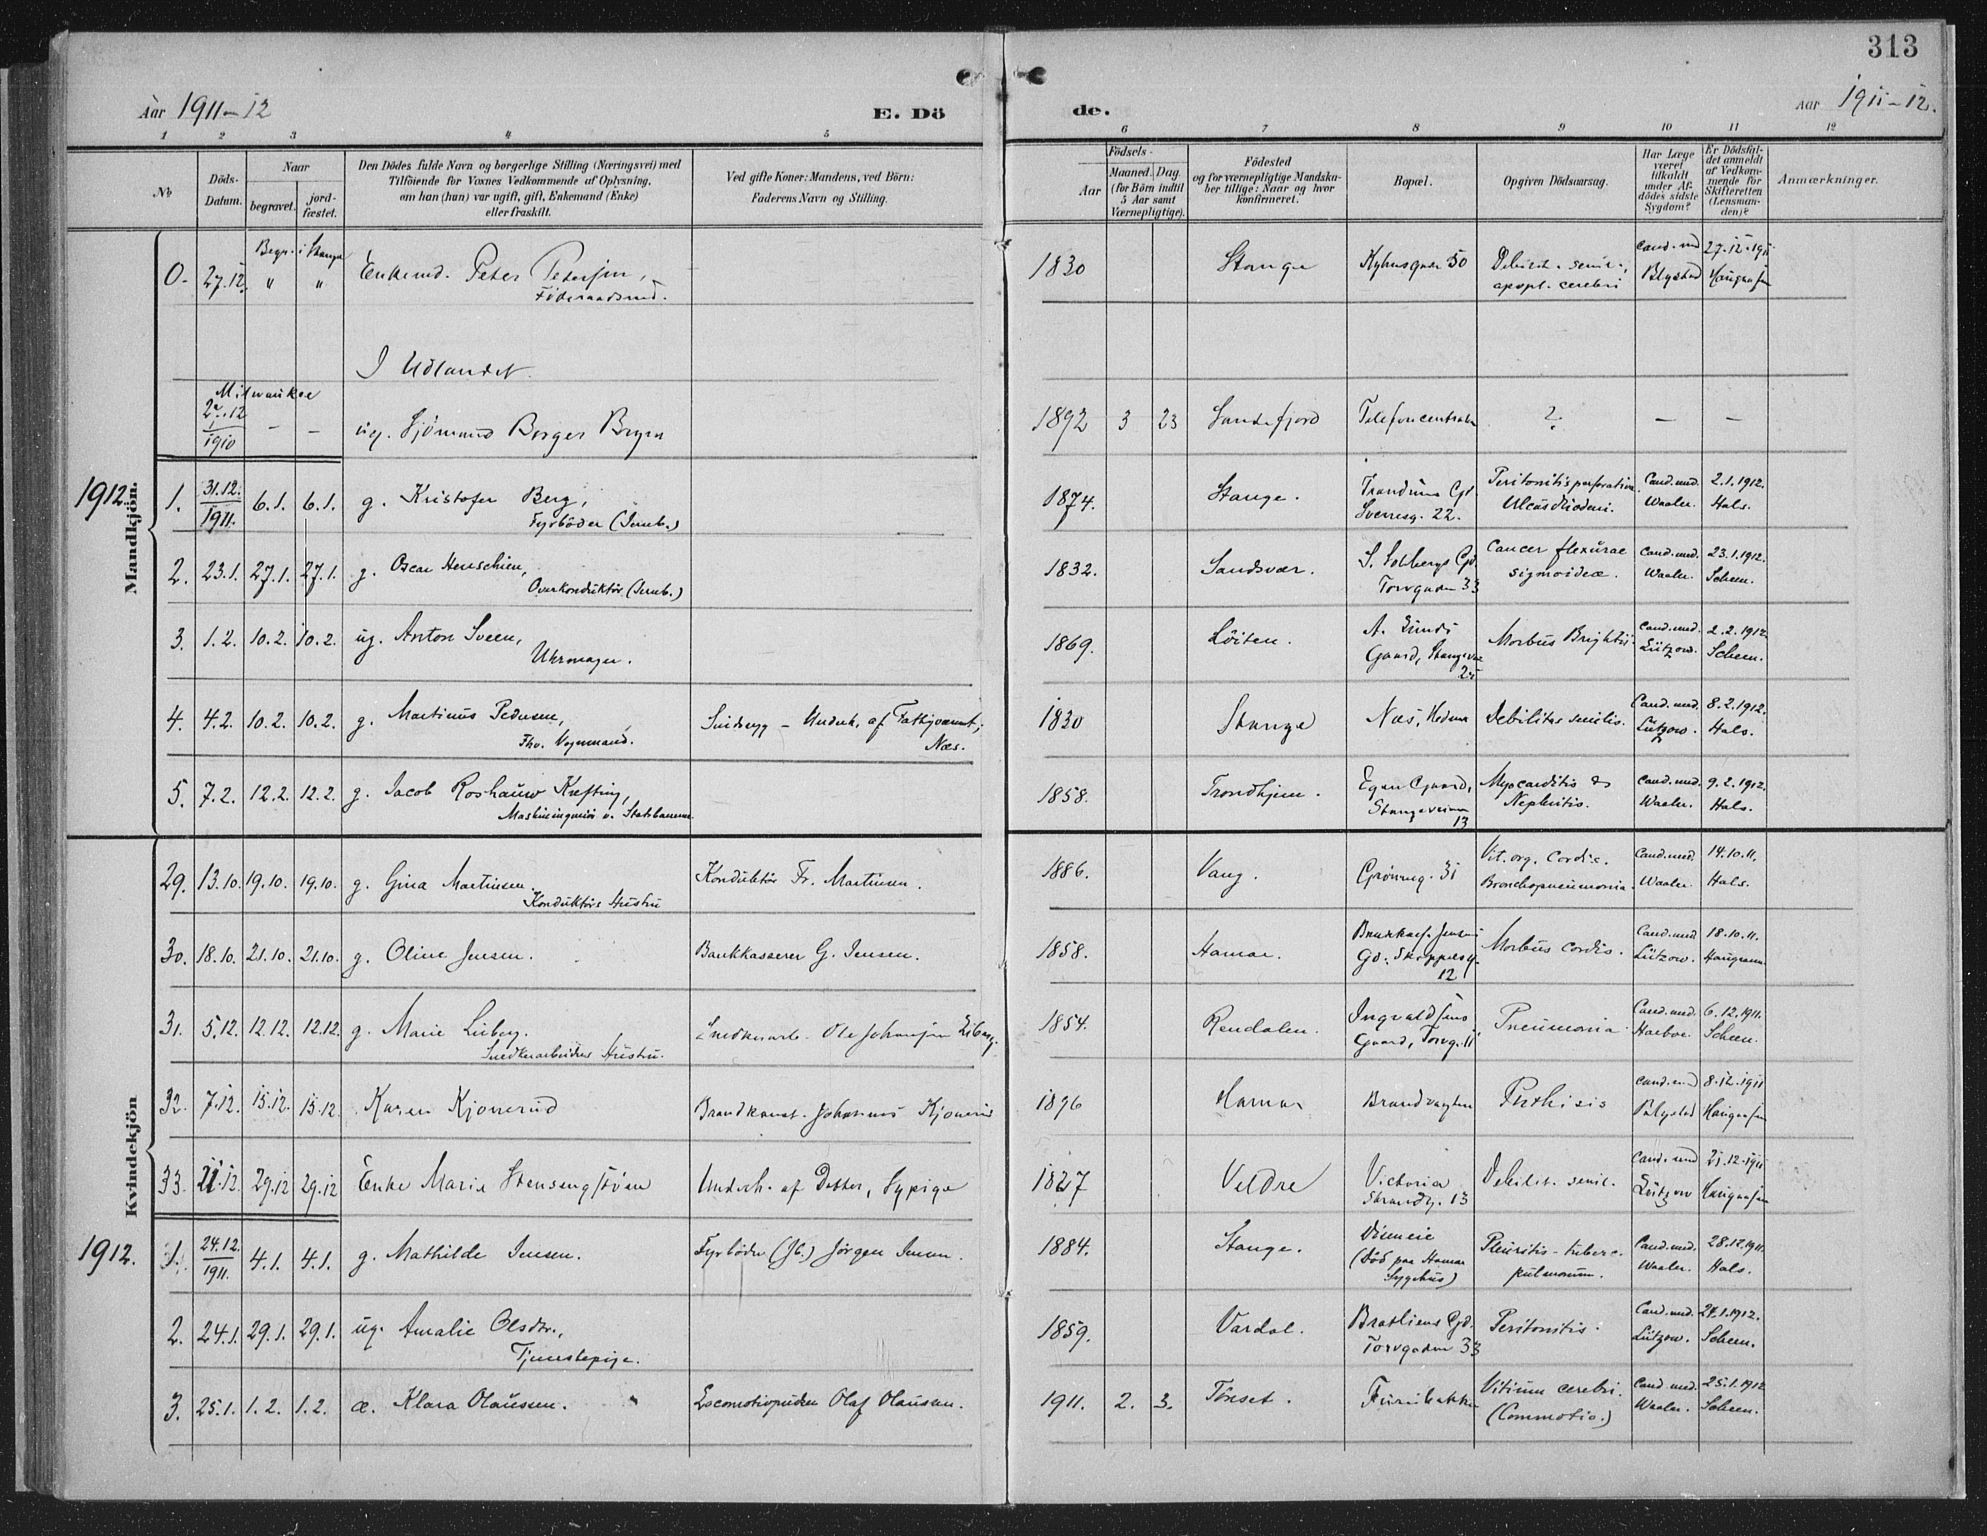 313
Aar 1911-12
E. Dö
de.
Aar 1911-12.
1 2 3 4 5 6 7 8 9 10 11 12
No
Döds-
Datum.
Naar
begravet.
jord-
fæstet.
Den Dödes fulde Navn og borgerlige Stilling (Næringsvei) med
Tilföiende for Voxnes Vedkommende af Oplysning,
om han (hun) var ugift, gift, Enkemand (Enke)
eller fraskilt.
Ved gifte Koner: Mandens, ved Börn:
Faderens Navn og Stilling.
Födsels-
Aar
Maaned.
Dag.
(for Börn indtil
5 Aar samt
Værnepligtige).
Födested
og for værnepligtige Mandska-
ber tillige: Naar og hvor
konfirmeret.
Bopæl.
Opgiven Dödsaarsag.
Har Læge
været
tilkaldt
under Af-
dödes sidste
Sygdom?
Er Dödsfal-
det anmeldt
af Vedkom-
mende for
Skifteretten
(Lensman-
den)?
Anmærkninger.
Mandkjön.
Begr. i Stange
0. 27.12. " " Enkemd. Peter Petersen, 1830 Stange 50 Debilit. senil., Cand. med 27.12.1911
Föderaadsmd. apopl. cerebri Blystad
I Udlandet.
Milwaukee
2.12
1910 - - ug. Sjömand Borger Bryn 1892 3 23 Sandefjord Telefoncentralen ? - -
1912.
1. 31.12. 1911. 6.1. 6.1. g. Kristofer Berg, 1874. Stange. Gd. Peritonitis perforativa. Cand. med. 2.1.1912.
Fyrböder (Jernb.) Sverresg. 22. Ulcus duodeni. Waaler. Hals.
2. 23.1. 27.1. 27.1. g. Oscar Henschien, 1832. Sandsvær. S. Solbergs Gd. Cancer flexurae Cand. med. 23.1.1912.
Overkonduktör (Jernb.) Torvgaden 33 sigmoideæ. Waaler. Scheen.
3. 1.2. 10.2. 10.2. ug. Anton Sveen, 1869. Löiten. A. Morbus Brightii. Cand. med. 2.2.1912.
Uhrmager. Gaard, Lützow. Scheen.
4. 4.2. 10.2. 10.2. g. Martinus Pedersen, - Underh. af Fattigvæsenet, 1830 Stange Næs, Hedem Debilitas senilis. Cand. med. 8.2.1912.
Fhv. Vognmand. Næs. Lützow. Hals.
5. 7.2. 12.2. 12.2. g. Jacob Roshauw Krefting, 1858. Trondhjem. Egen Gaard, Myocarditis & Cand. med. 9.2.1912.
Maskiningeniör v. Statsbanerne Stangeveien 13 Nephritis. Waaler. Hals.
Kvindekjön
29. 13.10. 19.10. 19.10. g. Gina Martinsen. Konduktör Fr. Martinsen. 1886. Vang. Grönneg. 31 Vit. org. cordis. Cand. med. 14.10.11.
Konduktörs Hustru Bronchopneumonia. Waaler. Hals.
30. 18.10. 21.10. 21.10. g. Oline Jensen. Bankkasserer G. Jensen. 1858. Hamar. Bankkass. Jensens Morbus cordis. Cand. med. 18.10.11.
Gd. Skappelsg. 12 Lützow.
31. 5.12. 12.12. 12.12. g. Marie Liberg. Snedkerarb. Ole Johansen Liberg. 1854. Rendalen. Ingvaldsens Pneumonia. Cand. med. 6.12.1911.
Snedkerarbeiders Hustru. Gaard, Torvg. 11 Scheen.
32. 7.12. 15.12. 15.12. Karen Kjonerud Brandkonst. Johannes Kjonerud 1896 Hamar Brandvagten Phthisis Cand. med 8.12.1911
Blystad
33. 21.12. 29.12 29.12 Enke Marie Stensengstöen Underh. af Datter, Sypige 1827 Veldre Victoria Debilit. senil. Cand. med 21.12.1911
Strandg. 13 Lützow
1912.
1. 24.12. 1911. 4.1. 4.1. g. Mathilde Jensen. Fyrböder (Jb.) Jörgen Jensen. 1884. Stange. Dismeie Pleuritis - tuberc. Cand. med. 28.12.1911.
(Död paa Hamar Sygehus) pulmonum. Waaler. Hals.
2. 24.1. 29.1. 29.1. ug. Amalie Olsdtr., 1859. Vardal. Bratliens Gd. Peritonitis. Cand. med. 24.1.1912.
Tjenestepige. Torvgaden 33 Lützow. Scheen.
3. 25.1. 1.2. 1.2. æ. Klara Olaussen. Locomotivpudser Olaf Olaussen. 1911. 2. 3. Tönset. Furubakken Vitium cerebri. Cand. med. 25.1.1912
(Commotio.) Waaler. Scheen.